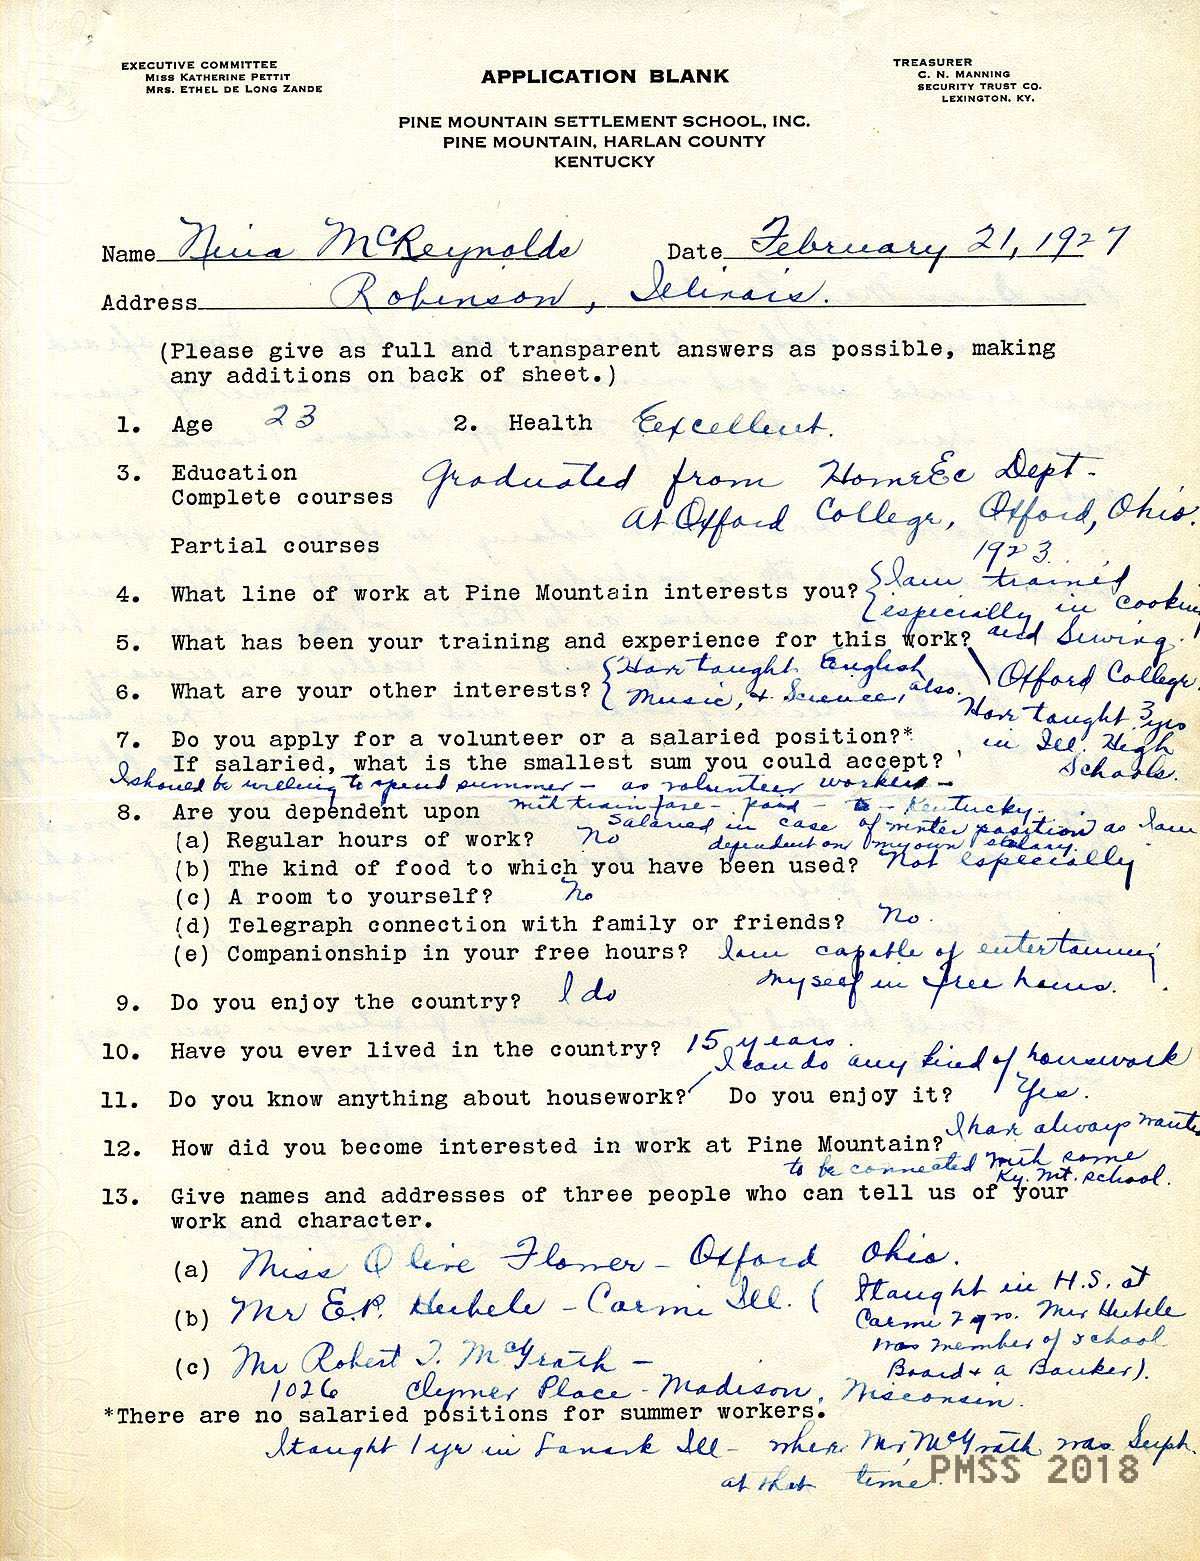 EXECUTIVE COMMITTEE
MISS KATHERINE PETTIT
MRS. ETHEL DE LONG ZANDE
APPLICATION BLANK
TREASURER
C. N. MANNING
SECURITY TRUST CO.
LEXINGTON, KY.
PINE MOUNTAIN SETTLEMENT SCHOOL, INC.
PINE MOUNTAIN, HARLAN COUNTY
KENTUCKY
Name Nina McReynolds Date February 21, 1927
Address Robinson, Illinois.
(Please give as full and transparent answers as possible, making
any additions on back of sheet.)
1. Age 23 2. Health Excellent.
3. Education Graduated from Home Ec Dept-
Complete courses At Oxford College, Oxford, Ohio.
Partial courses 1923.
4. What line of work at Pine Mountain interests you? {I am trained
{especially in cooking
and Sewing.
5. What has been your training and experience for this work?
Oxford College
Have taught 3 yrs
in Ill. High
Schools.
6. What are your other interests? {Have taught English
{Music, & Science, also.
7. Do you apply for a volunteer or a salaried position?*
If salaried, what is the smallest sum you could accept?
I should be willing to spend summer - as volunteer worker -
with train fare - paid - to - Kentucky.
Salaried in case of winter position as I am
dependent on my own salary.
8. Are you dependent upon
(a) Regular hours of work? No
(b) The kind of food to which you have been used? Not especially
(c) A room to yourself? No
(d) Telegraph connection with family or friends? No.
(e) Companionship in your free hours? I am capable of entertaining
myself in free hours.
9. Do you enjoy the country? I do
10. Have you ever lived in the country? 15 years.
I can do any kind of housework
11. Do you know anything about housework? Do you enjoy it? Yes.
12. How did you become interested in work at Pine Mountain? I have always wanted
to be connected with some
Ky. Mt. School.
13. Give names and addresses of three people who can tell us of your
work and character.
(a) Miss Olive Flower - Oxford Ohio.
(b) Mr E.P. Huibele - Carmi Ill. (I taught in H.S. at
Carmi 2 yrs. Mr Huibele
was member of school
Board & a Banker).
(c) Mr Robert T. McGrath -
1026 Clymer Place - Madison, Wisconsin.
*There are no salaried positions for summer workers.
I taught 1 yr in Lanark Ill - where Mr. McGrath was Supt.
at that time.
PMSS 2018